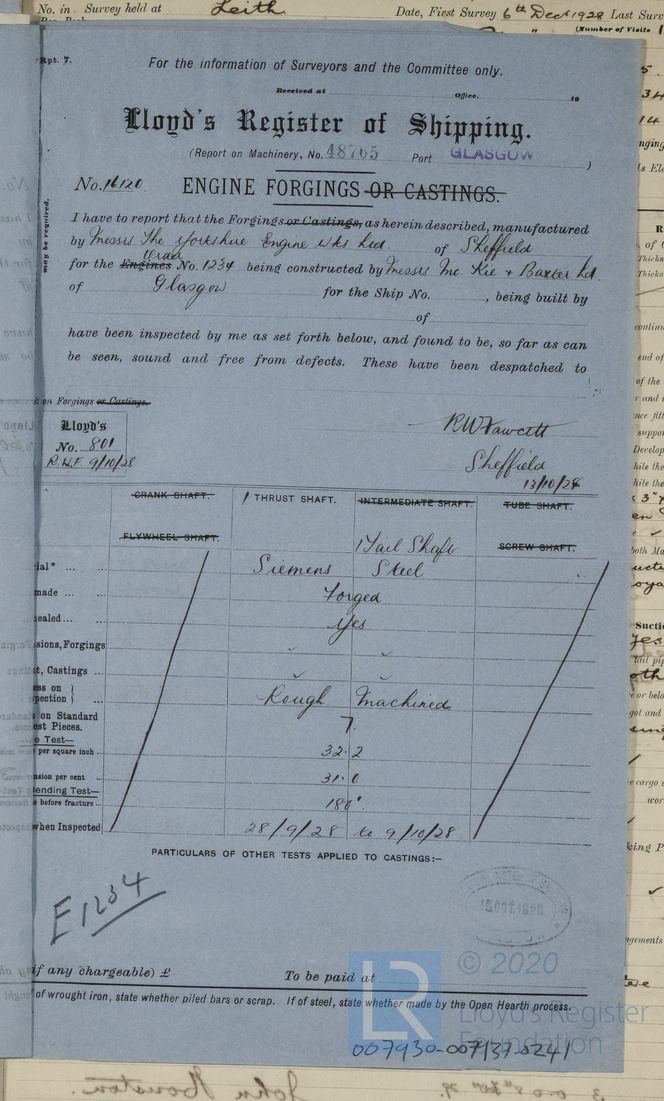 No. in Survey held at Leith Date, First Survey 6th Decr 1928 Last Surv
(Number of Visits
Rpt. 7.
For the information of Surveyors and the Committee only.
Received at Office, 19
Lloyd's Register of Shipping.
(Report on Machinery, No. 48765 Port GLASGOW )
No. 16120. ENGINE FORGINGS OR CASTINGS.
may be required.
I have to report that the Forgings or Castings, as herein described, manufactured
by Messrs The Yorkshire Engine Wks Ltd. of Sheffield
Order
for the Engines No. 1234 being constructed by Messrs Mc Kie & Baxter Ltd.
of Glasgow for the Ship No. , being built by
of
have been inspected by me as set forth below, and found to be, so far as can
be seen, sound and free from defects. These have been despatched to
on Forgings or Castings.
Lloyd's
No. 801
R.W.F 9/10/28
RW Fawcett
Sheffield
13/10/28
CRANK SHAFT. 1 THRUST SHAFT. INTERMEDIATE SHAFT. TUBE SHAFT.
FLYWHEEL SHAFT. 1 Tail Shaft SCREW SHAFT.
ial* ... ... Siemens Steel
made ... Forged
nealed ... ... Yes
sions, Forgings
t, Castings ...
ess on }
pection } Rough Machined
on Standard
est Pieces. 7.
e Test—
per square inch ... 32.2
nsion per cent ... 31.0
ending Test—
before fracture ... 180°.
when Inspected 28/9/28 to 9/10/28
PARTICULARS OF OTHER TESTS APPLIED TO CASTINGS:—
E1234
if any chargeable) £ To be paid at
of wrought iron, state whether piled bars or scrap. If of steel, state whether made by the Open Hearth process.
LR
© 2020
Lloyd's Register
Foundation
007930-007937-0241
John Houston.